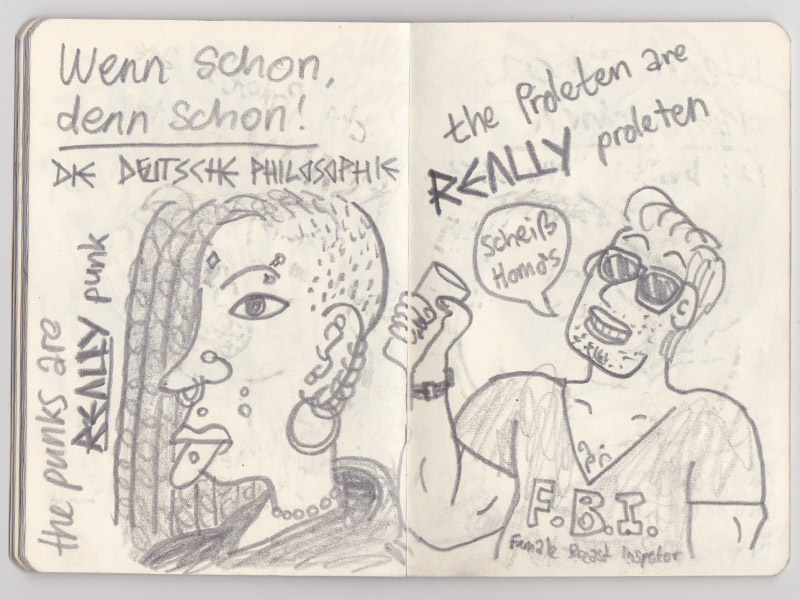 Wenn schon,
denn schon!
DIE DEUTSCHE PHILOSOPHIE
the punks are
REALLY punk
the Proleten are
REALLY proleten
Scheiß
Homos
F.B.I.
Female Breast Inspector